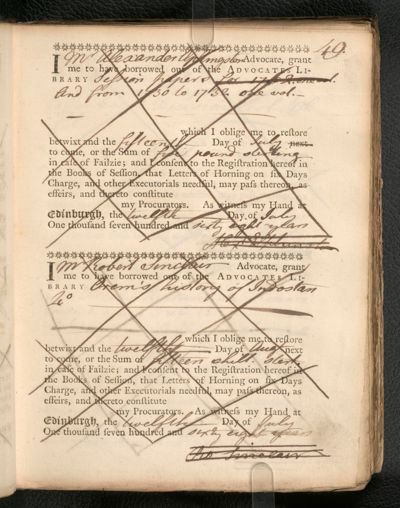 49.
I Mr Alexander Advocate, grant
me to have borrowed out of the ADVOCATES LI-
BRARY Session papers
And from 1730 to 1732 one vol.
which I oblige me to restore
betwixt and the fifteenth Day of July next
to come, or the Sum of pound sterling
in case of Failzie; and I consent to the Registration hereof in
the Books of Session, that Letters of Horning on six Days
Charge, and other Executorials needful, may pass thereon, as
effeirs, and thereto constitute
my Procurators. As witness my Hand at
Edinburgh, the twelfth Day of July
One thousand seven hundred and sixty eight years
I Mr Robert Sinclair Advocate, grant
me to have borrowed out of the ADVOCATES LI-
BRARY Orem's history of Indostan
which I oblige me to restore
betwixt and the twelfth Day of next
to come, or the Sum of fifteen shill: sterl:
in case of Failzie; and I consent to the Registration hereof in
the Books of Session, that Letters of Horning on six Days
Charge, and other Executorials needful, may pass thereon, as
effeirs, and thereto constitute
my Procurators. As witness my Hand at
Edinburgh, the twelfth Day of July
One thousand seven hundred and sixty eight years
Sinclair